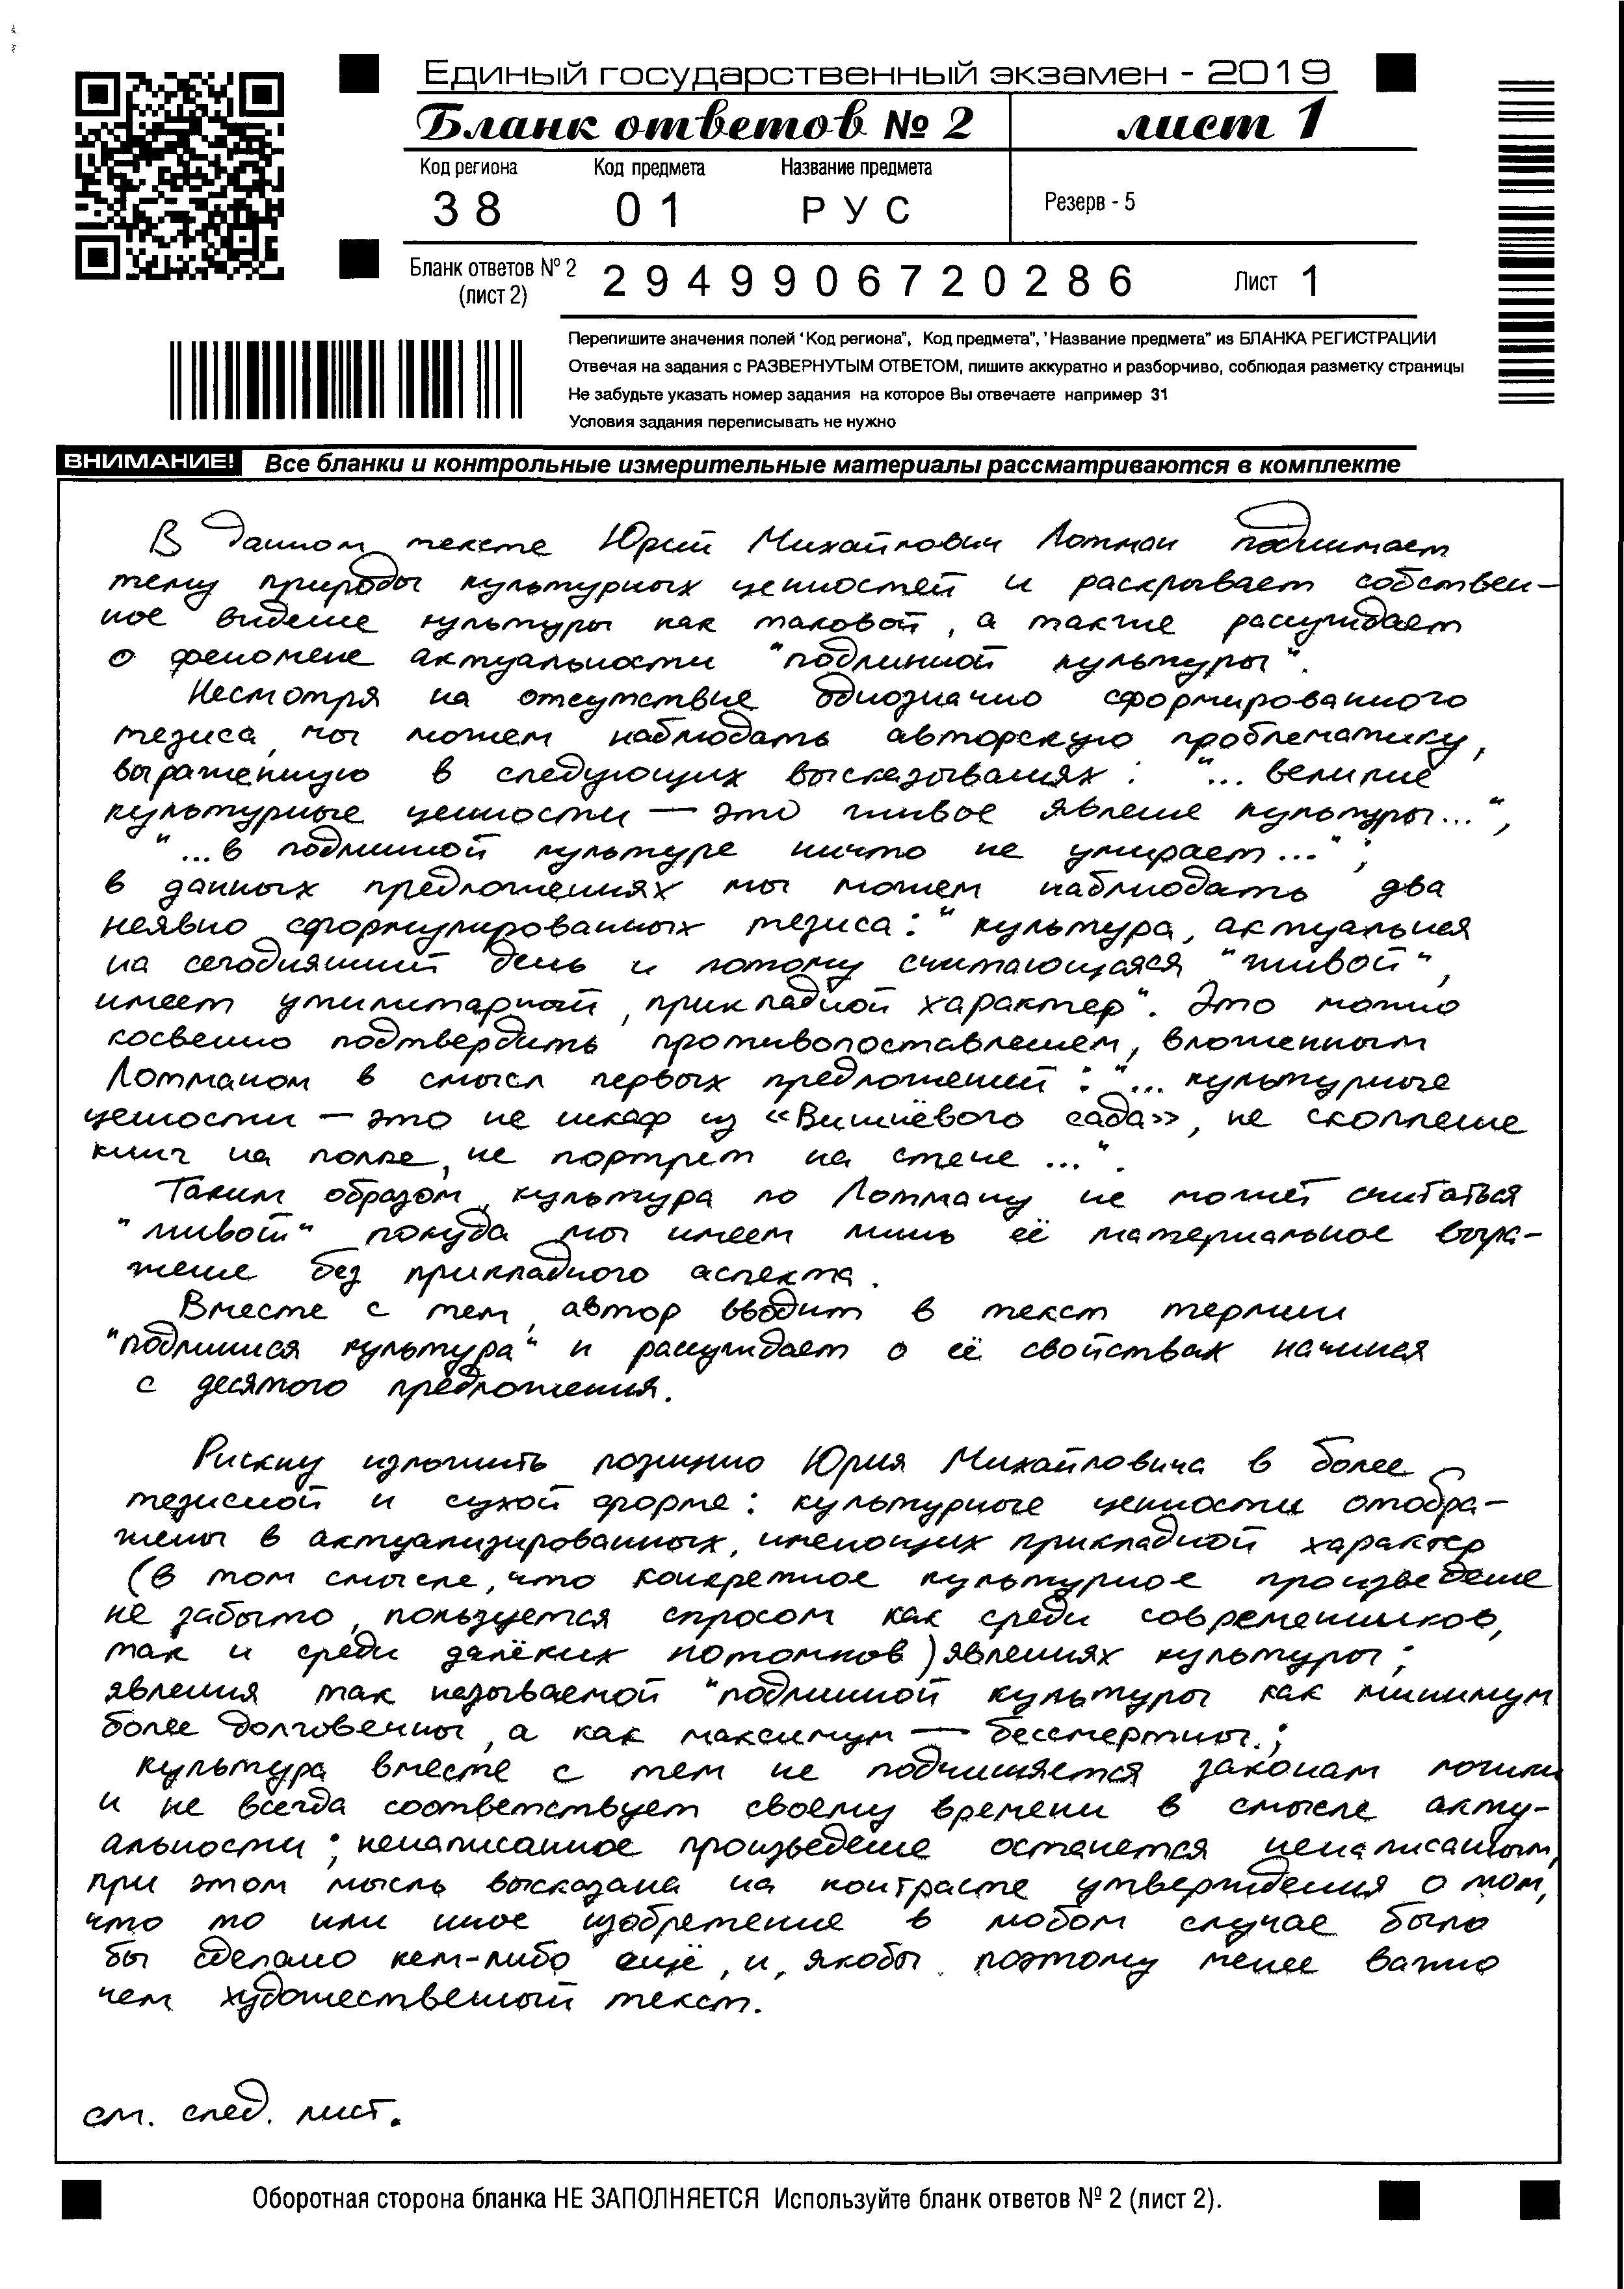 Единый государственный экзамен - 2019
Бланк ответов № 2
лист 1
Код региона
Код предмета
Название предмета
Резерв - 5
38
01
РУС
Бланк ответов № 2
(лист 2)
2949906720286
Лист 1
Перепишите значения полей "Код региона", Код предмета", 'Название предмета" из БЛАНКА РЕГИСТРАЦИИ
Отвечая на задания с РАЗВЕРНУТЫМ ОТВЕТОМ, пишите аккуратно и разборчиво, соблюдая разметку страницы
Не забудьте указать номер задания на которое Вы отвечаете например 31
Условия задания переписывать не нужно
ВНИМАНИЕ! Все бланки и контрольные измерительные материалы рассматриваются в комплекте
В данном тексте Юрий Михайлович Лотман поднимает
тему природы культурных ценностей и раскрывает собствен-
ное видение культуры как таковой, а также рассуждает
о феномене актуальности "подлинной культуры".
Несмотря на отсутствие однозначно сформированного
тезиса, мы можем наблюдать авторскую проблематику,
выраженную в следующих высказываниях: "... великие
культурные ценности — это живое явление культуры...",
"...в подлинной культуре ничто не умирает...";
в данных предложениях мы можем наблюдать два
неявно сформулированных тезиса: "культура, актуальная
на сегодняшний день и потому считающаяся "живой",
имеет утилитарный, прикладной характер". Это можно
косвенно подтвердить противопоставлением, вложенным
Лотманом в смысл первых предложений: "... культурные
ценности — это не шкаф из «Вишнёвого сада», не скопление
книг на полке, не портрет на стене ...".
Таким образом, культура по Лотману не может считаться
"живой" покуда мы имеем лишь её материальное выра-
жение без прикладного аспекта.
Вместе с тем, автор вводит в текст термин
"подлинная культура" и рассуждает о её свойствах начиная
с десятого предложения.
Рискну изложить позицию Юрия Михайловича в более
тезисной и сухой форме: культурные ценности отобра-
жены в актуализированных, имеющих прикладной характер
(в том смысле, что конкретное культурное произведение
не забыто, пользуется спросом как среди современников,
так и среди далёких потомков) явлениях культуры;
явления так называемой "подлинной культуры как минимум
более долговечны, а как максимум — бессмертны.;
культура вместе с тем не подчиняется законам логики
и не всегда соответствует своему времени в смысле акту-
альности; ненаписанное произведение останется ненаписанным,
при этом мысль высказана на контрасте утверждения о том,
что то или иное изобретение в любом случае было
бы сделано кем-либо ещё, и, якобы, поэтому менее важно
чем художественный текст.
см. след. лист.
Оборотная сторона бланка НЕ ЗАПОЛНЯЕТСЯ Используйте бланк ответов № 2 (лист 2).